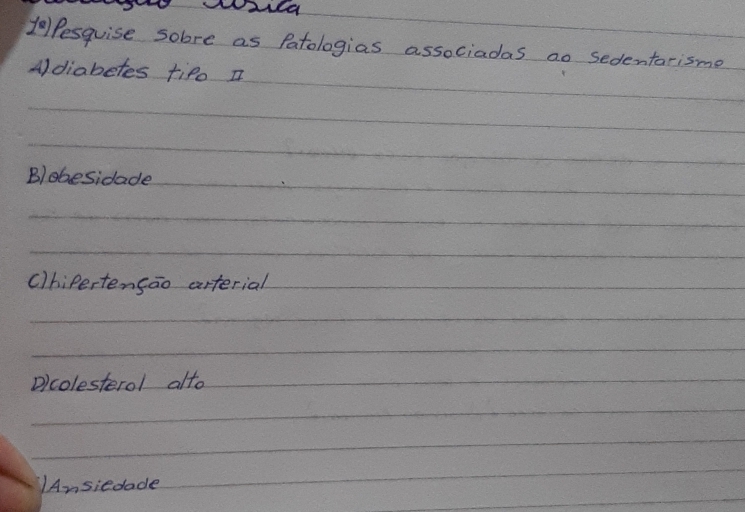 1º) Pesquise sobre as Patologias associadas ao sedentarismo
A) diabetes tipo II
B) obesidade
C) hipertenção arterial
D) colesterol alto
) Ansiedade